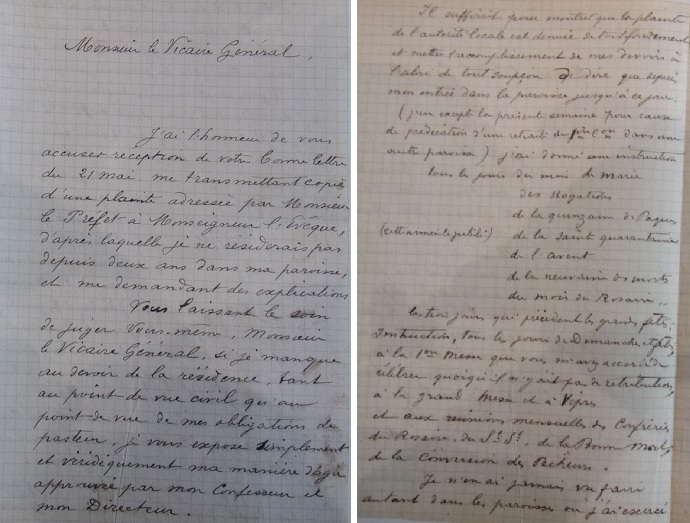 Monsieur le Vicaire Général,
J'ai l'honneur de vous
accuser reception de votre bonne lettre
du 21 mai, me transmettant copie
d'une plainte adressée par Monsieur
le Préfet à Monseigneur l'Evêque,
d'après laquelle je ne résiderais pas
depuis deux ans dans ma paroisse,
et me demandant des explications
Vous laissant le soin
de juger Vous-même, Monsieur
le Vicaire Général, si je manque
au devoir de la résidence, tant
au point de vue civil qu'au
point de vue de mes obligations de
pasteur, je vous expose simplement
et véridiquement ma manière d'agir
approuvée par mon Confesseur et
mon Directeur.
Il suffirait pour montrer que la plainte
de l'autorité locale est denuée de tout fondement
et mettre l'accomplissement de mes devoirs à
l'abri de tout soupçon de dire que depuis
mon entrée dans la paroisse jusqu'à ce jour
(j'en excepte la présente semaine pour cause
de prédication d'une retraite de dans une
autre paroisse) j'ai donné une instruction
tous les jours du mois de Marie
des Rogations
de la quinzaine de Pâques
(cette année le jubilé) de la Sainte quarantaine
de l'avent
de la neuvaine des morts
du mois du Rosaire,
les trois jours qui précédent les grandes fêtes,
Instruction, tous les jours de Dimanche et fêtes
à la 1ère Messe que vous m'avez accordé de
célébrer quoiqu'il n'y ait pas de retribution,
à la grand Messe et à Vêpres
et aux réunions mensuelles des Confréries
du Rosaire, du St St, de la Bonne Mort,
de la Conversion des Pécheurs.
Je n'en ai jamais vu faire
autant dans les paroisses où j'ai exercé